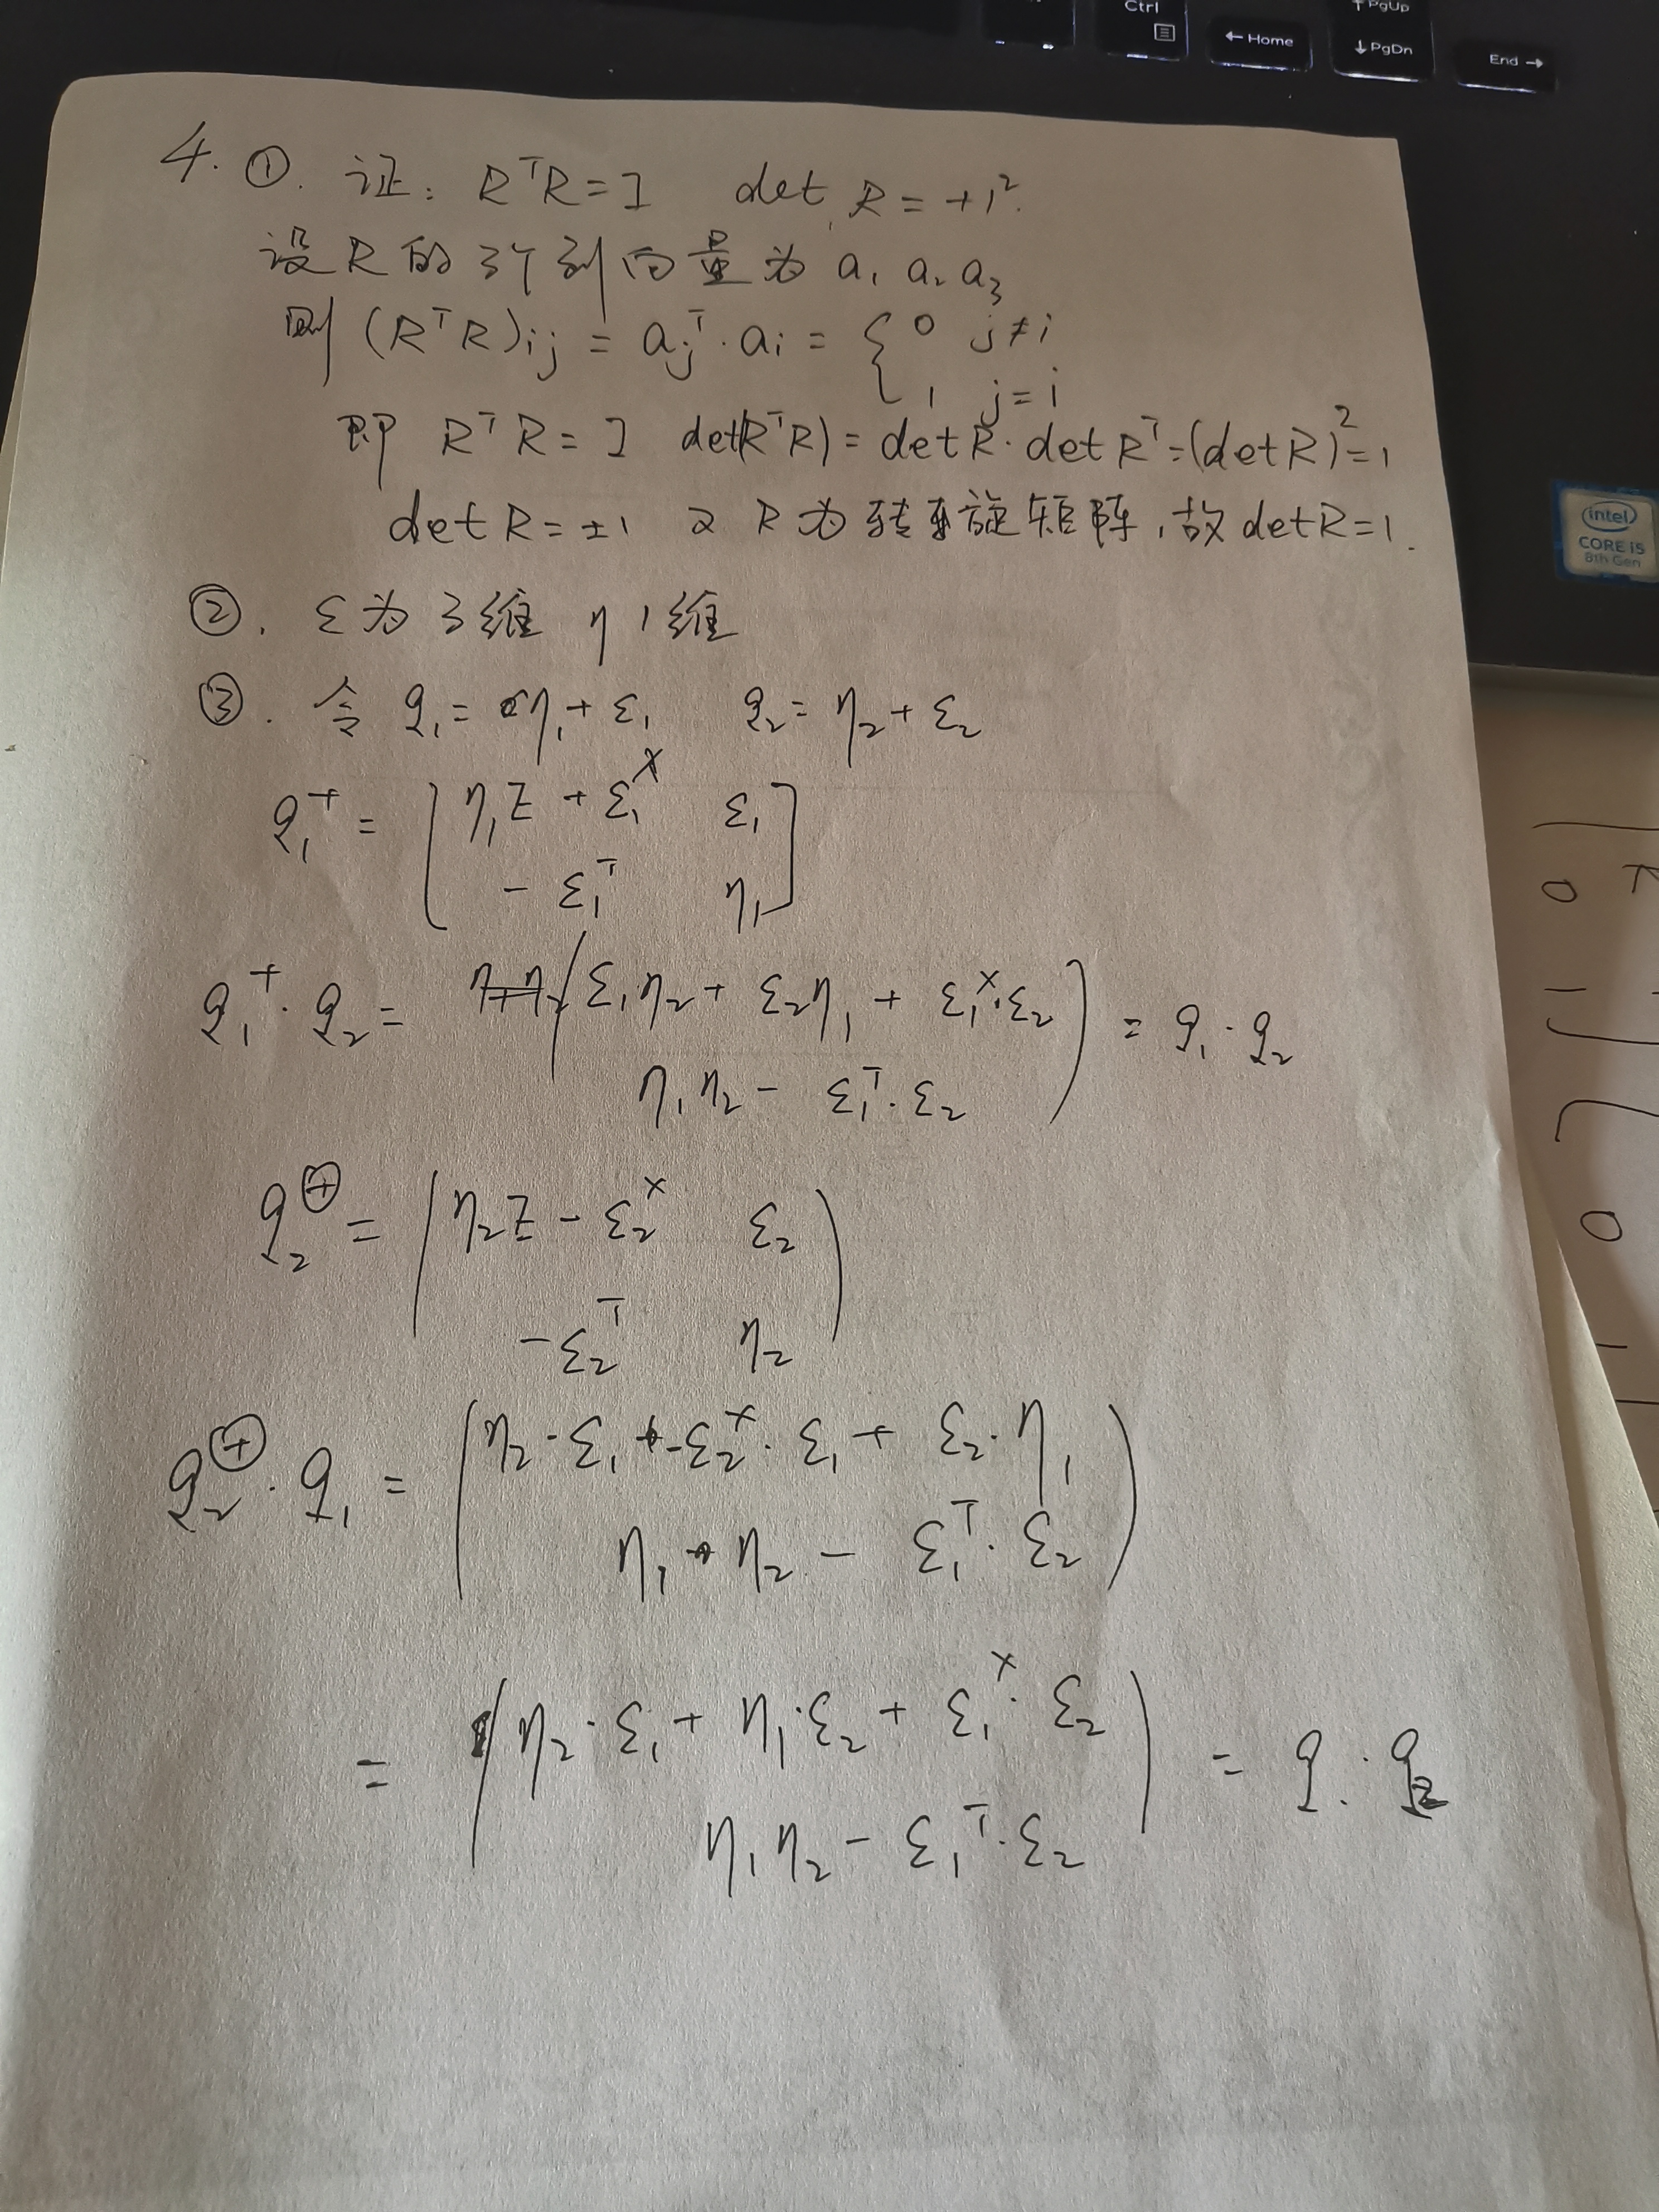 Ctrl
↑ PgUp
← Home
↓ PgDn
End →
4. ①. 证: RᵀR = I det R = +1².
设 R 的 3个列向量为 a₁ a₂ a₃
则 (RᵀR)ij = ajᵀ · ai = { 0 j≠i
1 j = i
即 RᵀR = I det(RᵀR) = det R · det Rᵀ = (det R)² = 1
det R = ±1 又 R 为 旋矩阵, 故 det R = 1.
intel
CORE i5
8th Gen
②. ε为3维 η 1维
③. 令 q₁ = η₁ + ε₁ q₂ = η₂ + ε₂
q₁⁺ = [ η₁I + ε₁ˣ ε₁
- ε₁ᵀ η₁ ]
q₁⁺ · q₂ = ( ε₁η₂ + ε₂η₁ + ε₁ˣ·ε₂
η₁η₂ - ε₁ᵀ·ε₂ ) = q₁ · q₂
q₂^⊕ = ( η₂I - ε₂ˣ ε₂
-ε₂ᵀ η₂ )
q₂^⊕ · q₁ = ( η₂·ε₁ - ε₂ˣ·ε₁ + ε₂·η₁
η₁ · η₂ - ε₁ᵀ·ε₂ )
= ( η₂·ε₁ + η₁·ε₂ + ε₁ˣ·ε₂
η₁η₂ - ε₁ᵀ·ε₂ ) = q₁ · q₂